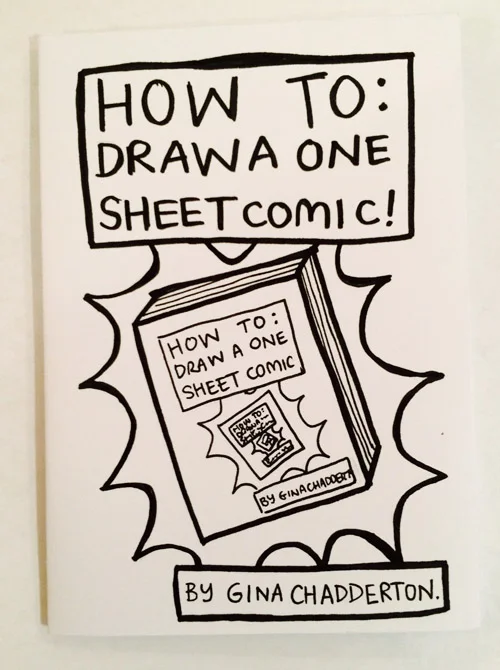 HOW TO:
DRAW A ONE
SHEET COMIC!
HOW TO:
DRAW A ONE
SHEET COMIC
HOW TO:
BY GINA CHADDERT
BY GINA CHADDERTON.